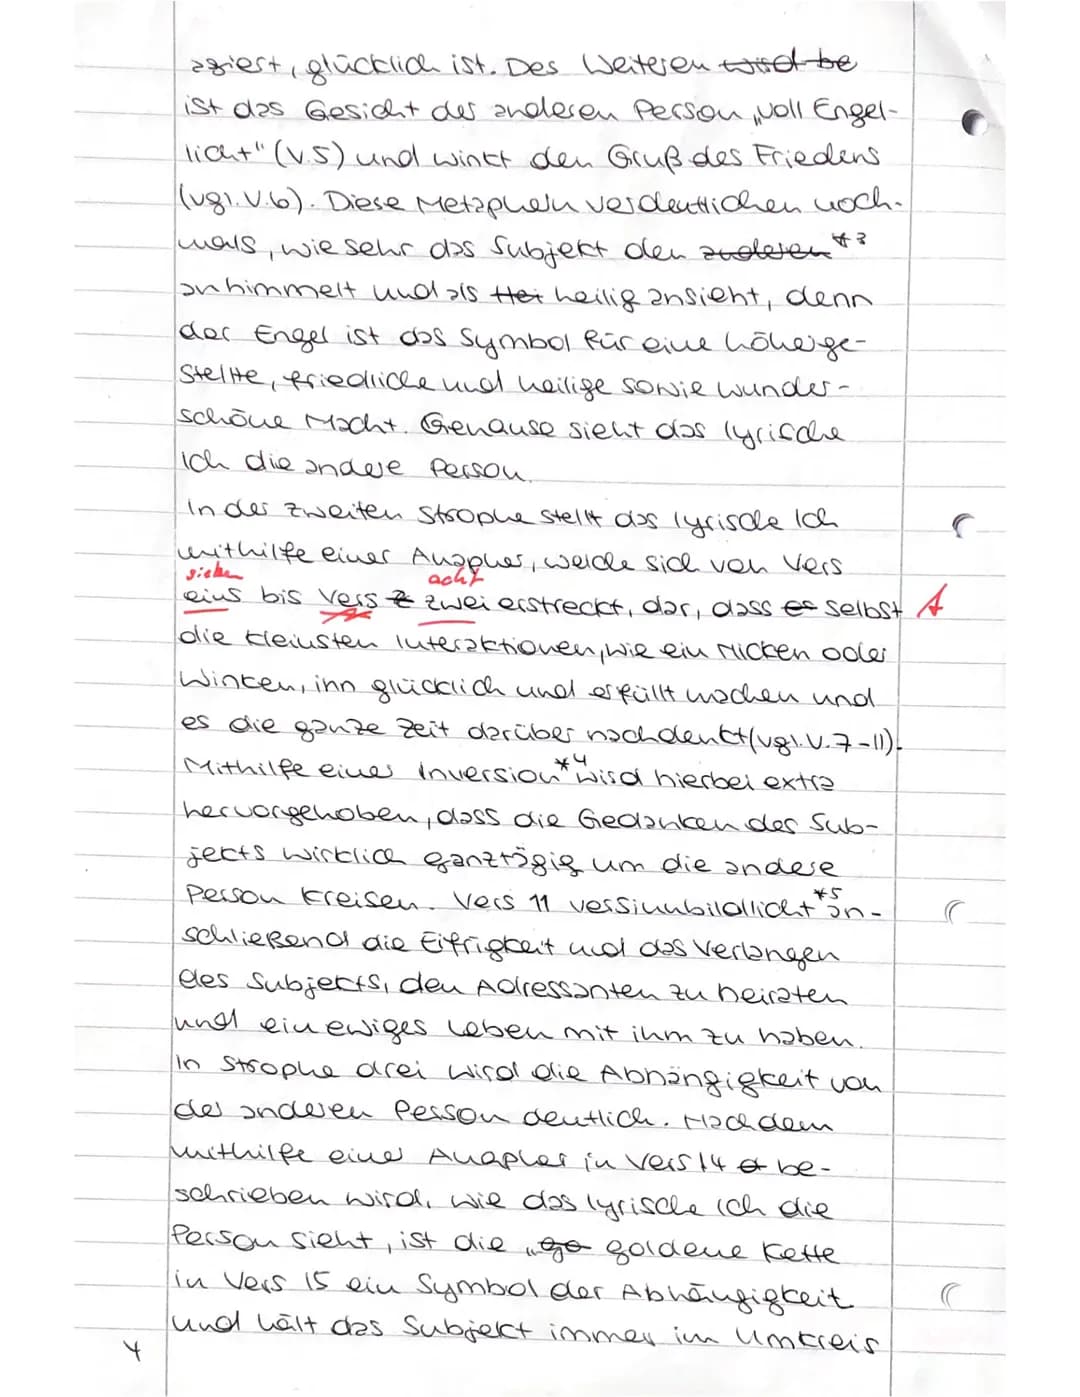 agiert, glücklich ist. Des Weiteren wird be
ist das Gesicht der anderen Person „voll Engel-
licht" (V.5) und winkt den Gruß des Friedens
(vgl. V.6). Diese Metaphern verdeutlichen noch-
mals, wie sehr das Subjekt den anderen *3
anhimmelt und als Hei heilig ansieht, denn
der Engel ist das Symbol für eine höherge-
stellte, friedliche und heilige sowie wunder-
schöne Macht. Genause sieht das lyrische
Ich die andere Person.
In der zweiten Strophe stellt das lyrische Ich
mithilfe einer Anapher, welche sich von Vers
sieben acht
eins bis Vers 2 zwei erstreckt, dar, dass es selbst A
die kleinsten Interaktionen, wie ein Nicken oder
Winken, ihn glücklich und erfüllt machen und
es die ganze Zeit darüber nachdenkt (vgl. V. 7-11).
Mithilfe einer Inversion *4 wird hierbei extra
hervorgehoben, dass die Gedanken des Sub-
jects wirklich ganztägig um die andere
Person kreisen. Vers 11 versinnbildlicht *5 an-
schließend die Eifrigkeit und das Verlangen
des Subjekts, den Adressanten zu heiraten
und ein ewiges Leben mit ihm zu haben.
In Strophe drei wird die Abhängigkeit von
der anderen Person deutlich. Nachdem
mithilfe einer Anapher in Vers 14 be-
schrieben wird, wie das lyrische Ich die
Person sieht, ist die „go goldene Kette
in Vers 15 ein Symbol der Abhängigkeit
und hält das Subjekt immer im Umkreis
4